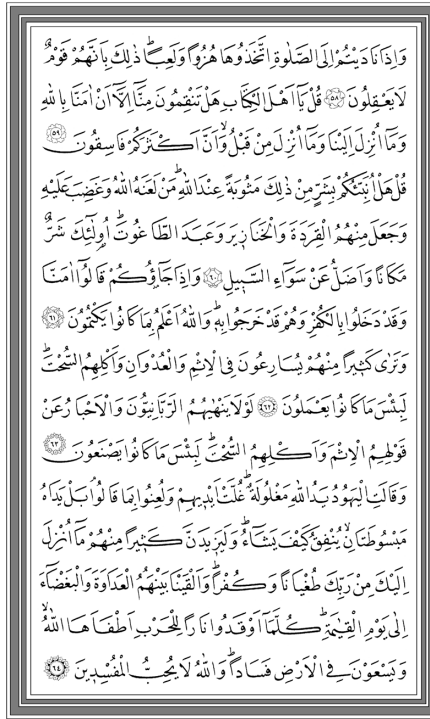 وَاِذَا نَادَيْتُمْ اِلَى الصَّلٰوةِ اتَّخَذُوهَا هُزُوًا وَلَعِبًاۜ ذٰلِكَ بِاَنَّهُمْ قَوْمٌ
لَا يَعْقِلُونَ ﴿٥٨﴾ قُلْ يَٓا اَهْلَ الْكِتَابِ هَلْ تَنْقِمُونَ مِنَّٓا اِلَّٓا اَنْ اٰمَنَّا بِاللّٰهِ
وَمَٓا اُنْزِلَ اِلَيْنَا وَمَٓا اُنْزِلَ مِنْ قَبْلُۙ وَاَنَّ اَكْثَرَكُمْ فَاسِقُونَ ﴿٥٩﴾
قُلْ هَلْ اُنَبِّئُكُمْ بِشَرٍّ مِنْ ذٰلِكَ مَثُوبَةً عِنْدَ اللّٰهِۜ مَنْ لَعَنَهُ اللّٰهُ وَغَضِبَ عَلَيْهِ
وَجَعَلَ مِنْهُمُ الْقِرَدَةَ وَالْخَنَازِيرَ وَعَبَدَ الطَّاغُوتَۜ اُو۬لٰٓئِكَ شَرٌّ
مَكَانًا وَاَضَلُّ عَنْ سَوَٓاءِ السَّبِيلِ ﴿٦٠﴾ وَاِذَا جَٓاؤُ۫كُمْ قَالُٓوا اٰمَنَّا
وَقَدْ دَخَلُوا بِالْكُفْرِ وَهُمْ قَدْ خَرَجُوا بِهٖۜ وَاللّٰهُ اَعْلَمُ بِمَا كَانُوا يَكْتُمُونَ ﴿٦١﴾
وَتَرٰى كَثِيرًا مِنْهُمْ يُسَارِعُونَ فِي الْاِثْمِ وَالْعُدْوَانِ وَاَكْلِهِمُ السُّحْتَۜ
لَبِئْسَ مَا كَانُوا يَعْمَلُونَ ﴿٦٢﴾ لَوْلَا يَنْهٰيهُمُ الرَّبَّانِيُّونَ وَالْاَحْبَارُ عَنْ
قَوْلِهِمُ الْاِثْمَ وَاَكْلِهِمُ السُّحْتَۜ لَبِئْسَ مَا كَانُوا يَصْنَعُونَ ﴿٦٣﴾
وَقَالَتِ الْيَهُودُ يَدُ اللّٰهِ مَغْلُولَةٌۜ غُلَّتْ اَيْدِيهِمْ وَلُعِنُوا بِمَا قَالُواۢ بَلْ يَدَاهُ
مَبْسُوطَتَانِۙ يُنْفِقُ كَيْفَ يَشَٓاءُۜ وَلَيَزِيدَنَّ كَثِيرًا مِنْهُمْ مَٓا اُنْزِلَ
اِلَيْكَ مِنْ رَبِّكَ طُغْيَانًا وَكُفْرًاۜ وَاَلْقَيْنَا بَيْنَهُمُ الْعَدَاوَةَ وَالْبَغْضَٓاءَ
اِلٰى يَوْمِ الْقِيٰمَةِۜ كُلَّمَٓا اَوْقَدُوا نَارًا لِلْحَرْبِ اَطْفَاَهَا اللّٰهُۙ
وَيَسْعَوْنَ فِي الْاَرْضِ فَسَادًاۜ وَاللّٰهُ لَا يُحِبُّ الْمُفْسِدِينَ ﴿٦٤﴾